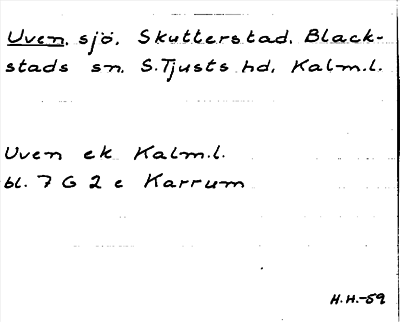 Uven, sjö, Skutterstad, Black-
stads sn, S.Tjusts hd, Kalm.l.
Uven ek Kalm.l.
bl. 7 G 2 e Karrum
H.H.-59